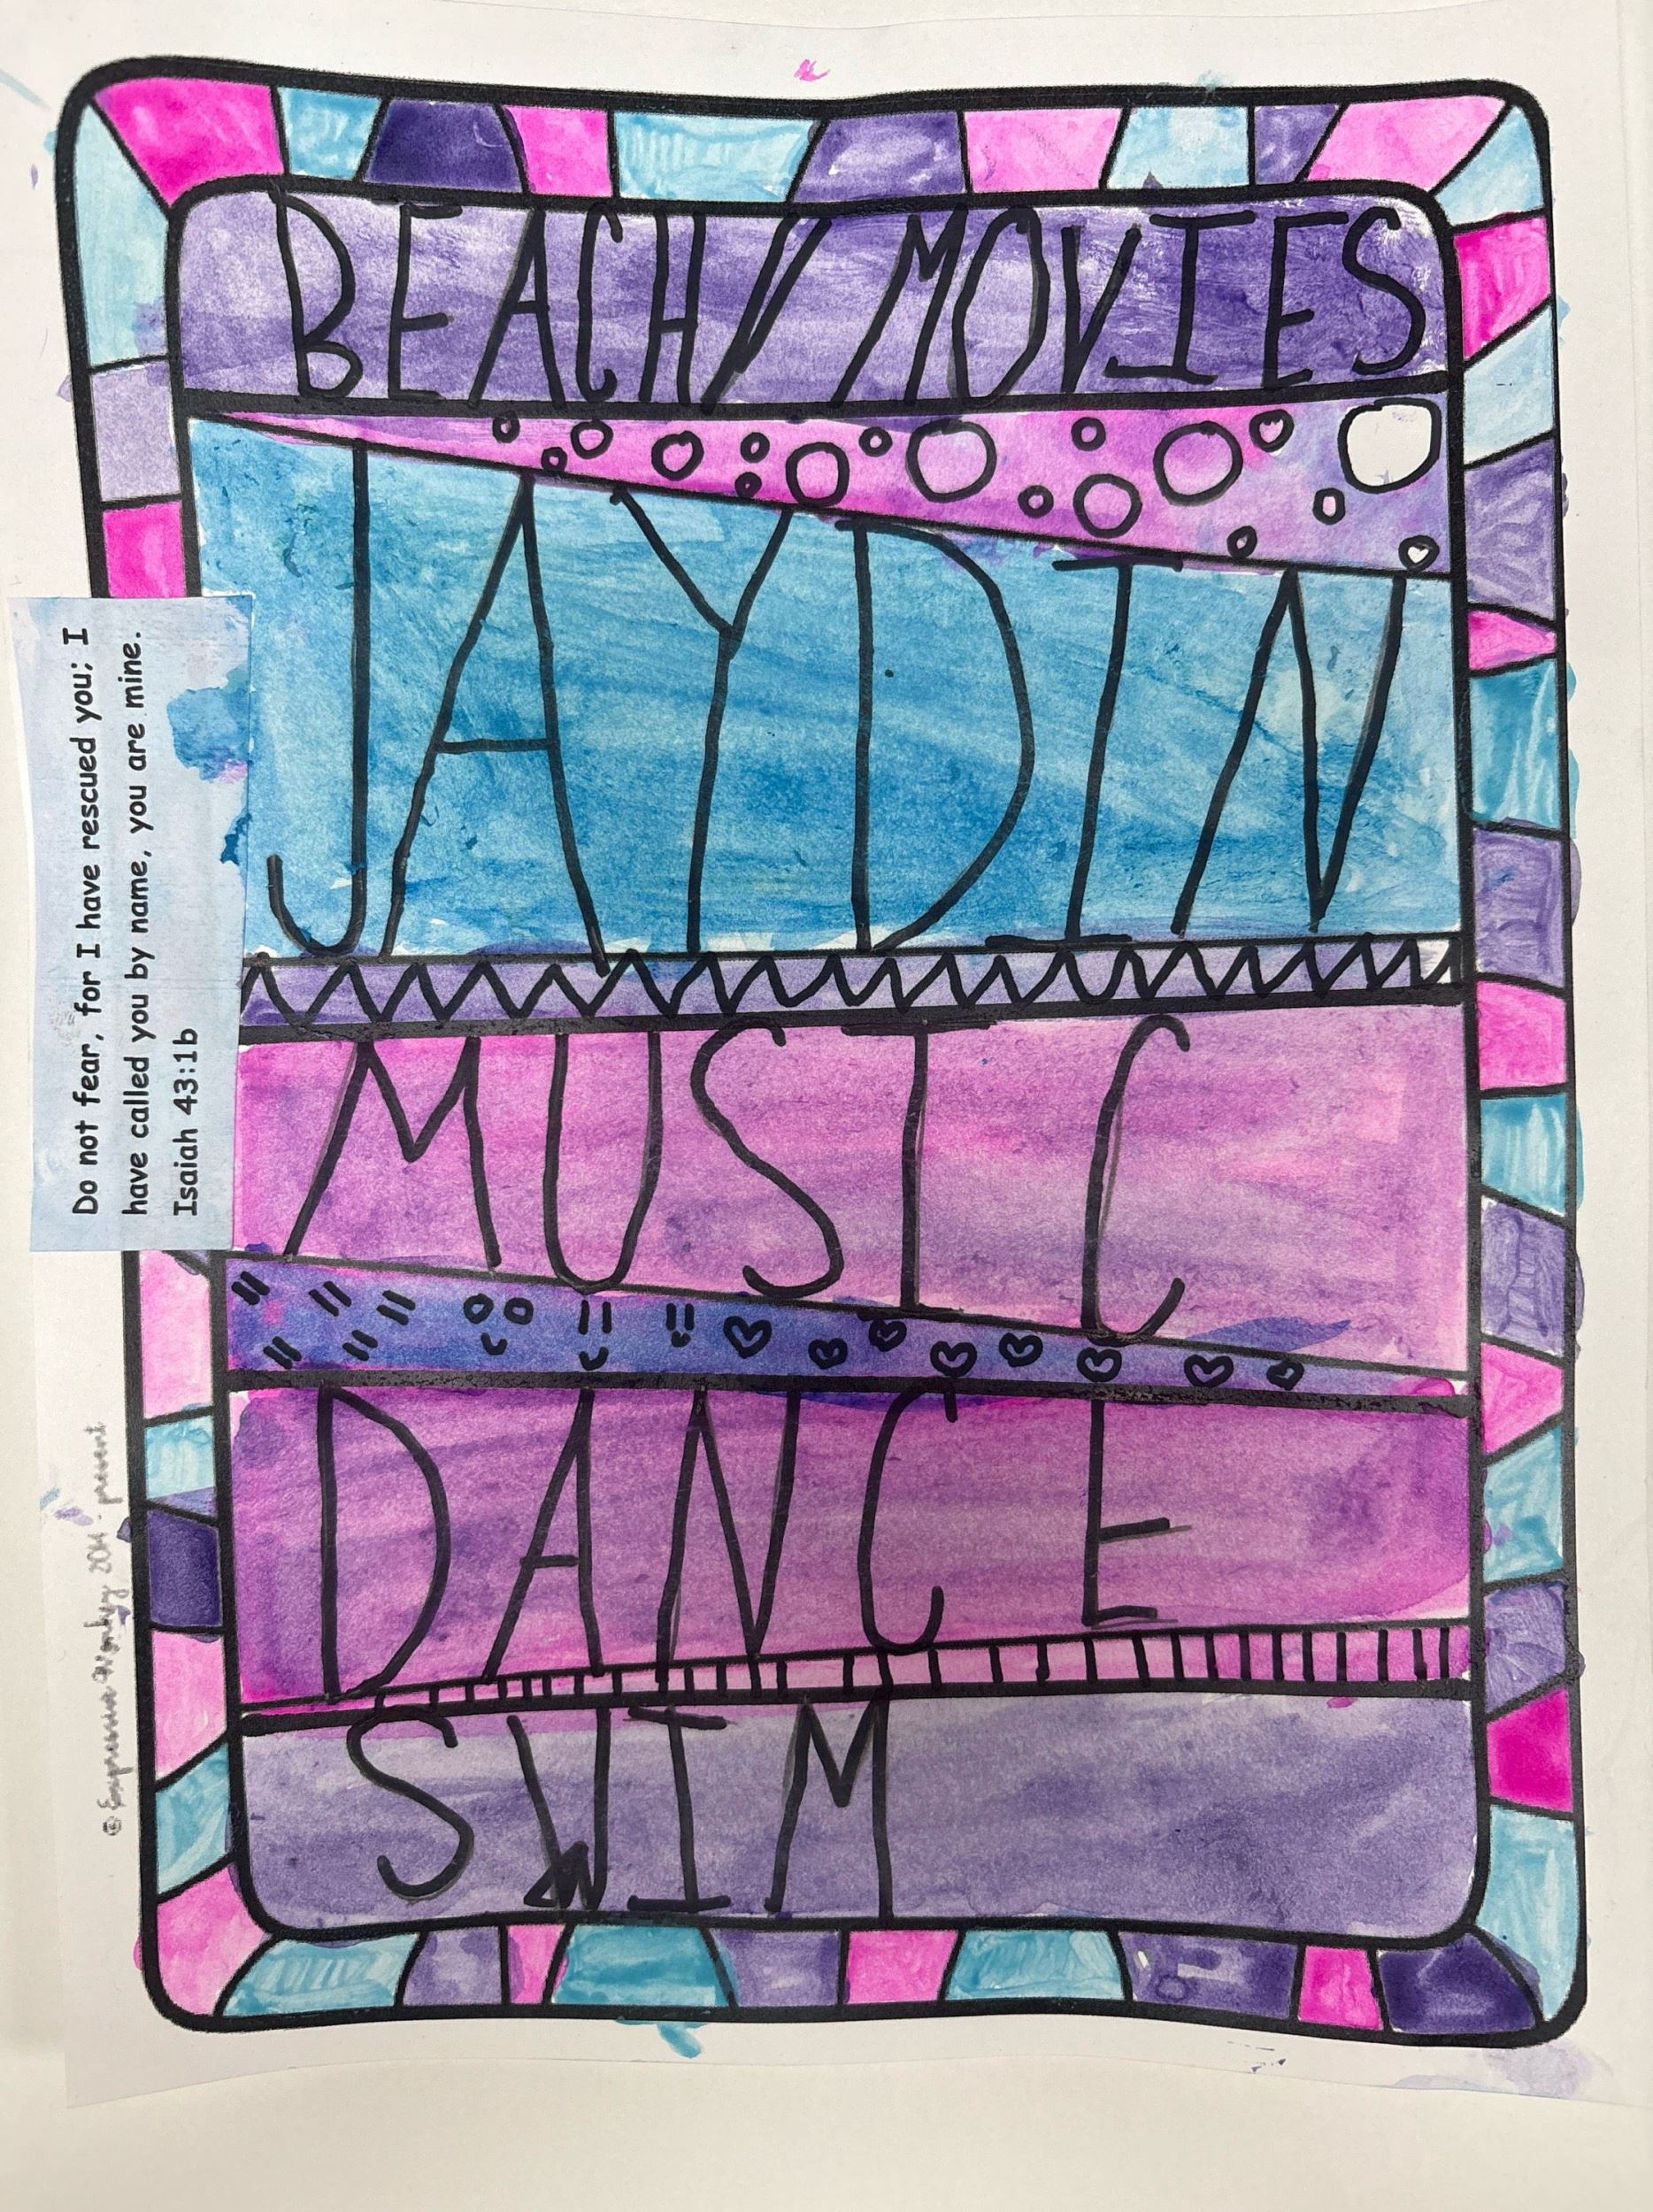 BEACH // MOVIES
JAYDIN
MUSIC
DANCE
SWIM
Do not fear, for I have rescued you; I
have called you by name, you are mine.
Isaiah 43:1b
© Expressive Monkey 2014 - present